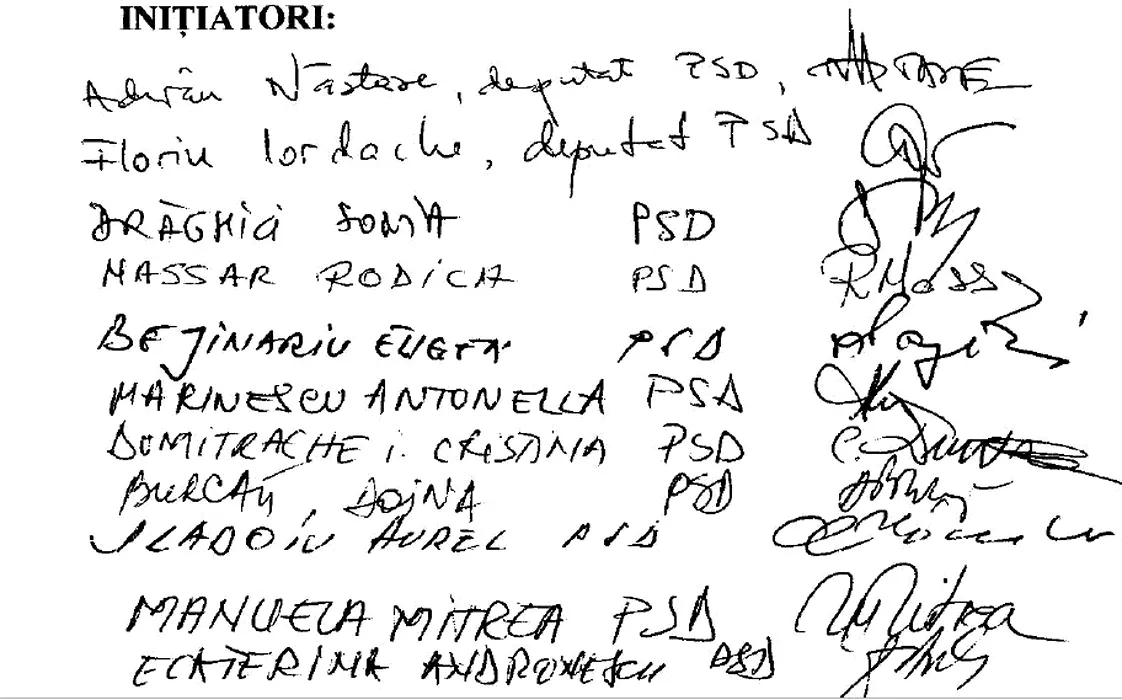 INIȚIATORI:
Adrian Năstase, deputat PSD, NĂSTASE
Florin Iordache, deputat PSD
DRĂGHICI SONIA PSD
NASSAR RODICA PSD R Nass
BEJINARIU EUGEN PSD
MARINESCU ANTONELLA PSD
DUMITRACHE I. CRISTINA PSD
BURCĂU, DOINA PSD
VLĂDOIU AUREL PSD
MANUELA MITREA PSD MMitrea
ECATERINA ANDRONESCU PSD